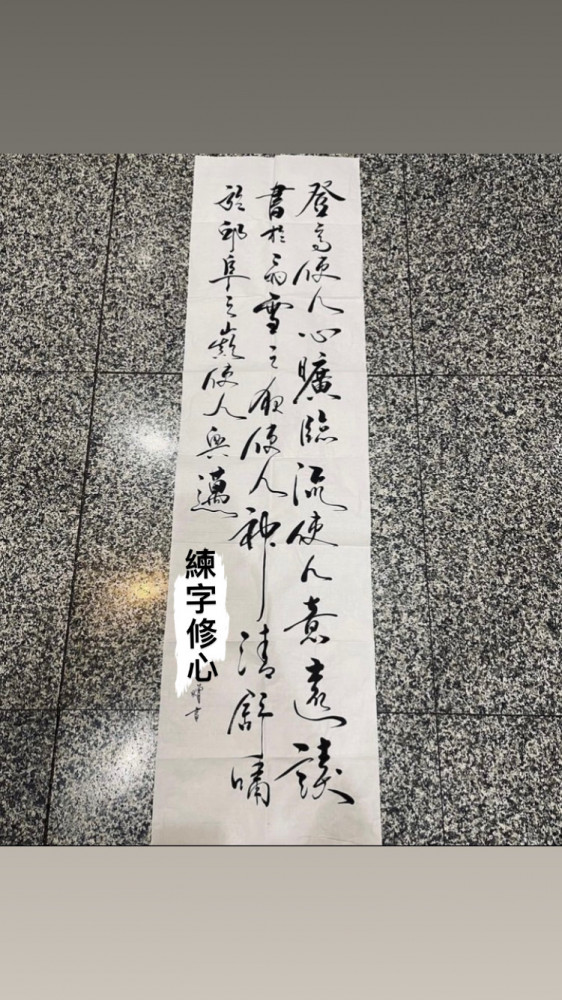 登高使人心曠臨流使人意遠讀
書於雨雪之夜使人神清舒嘯
於邱阜之巔使人興邁
練字修心